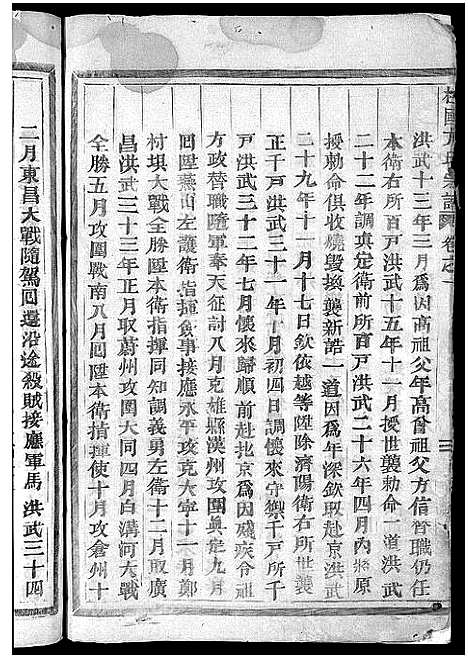 洪武十三年三月爲因高祖父年高曾祖父方信替職仍任
本衛右所百戸洪武十五年十一月授世襲勅命一道洪武
二十二年調真定衛前所百戸洪武二十六年四月內將原
授勅命俱收燒毀換襲新誥一道因爲年深欽取赴京洪武
二十九年十一月十七日欽依越等陞除濟陽衛右所世襲
正千戸洪武三十一年十月初四日調懷來守禦千戸所千
戸洪武三十二年七月懷來歸順前赴北京爲因殘疾令祖
方政替職隨軍奉天征討八月克雄縣漠州攻圍眞定九月
回陞燕山左護衛指揮僉事接應永平攻克大寧十一月鄭
村垻大戰全勝陞本衛指揮同知調義勇左衛十二月取廣
昌洪武三十三年正月取蔚州攻圍大同四月白溝河大戰
全勝五月攻圍戰南八月回陞本衛指揮使十月攻倉州十
二月東昌大戰隨駕回還沿途殺賊接應軍馬洪武三十四